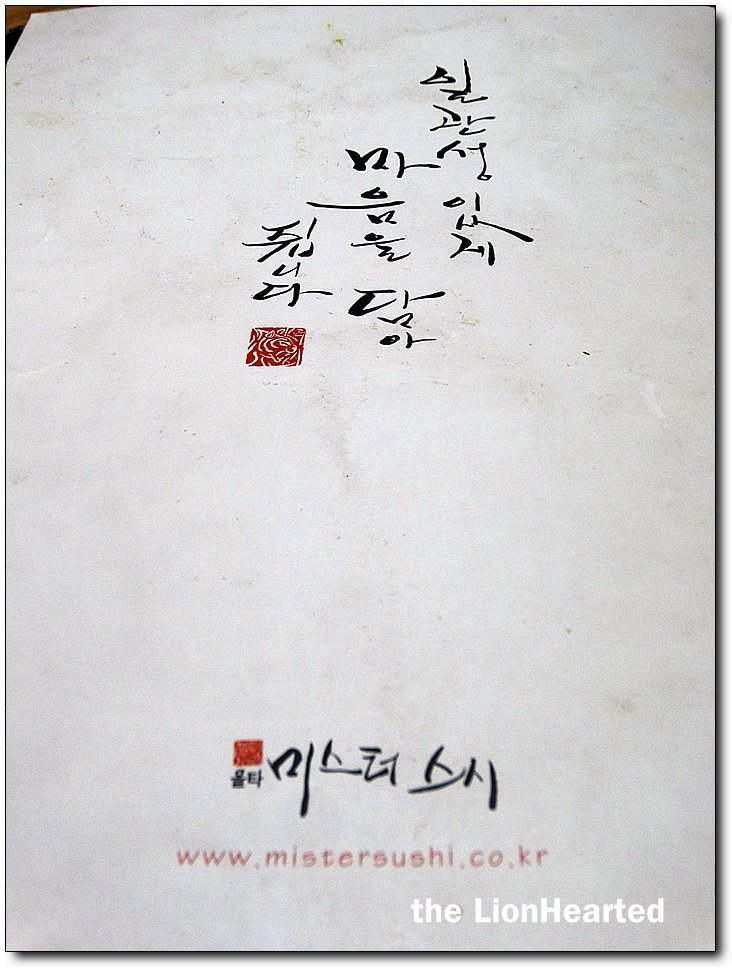 일관성 있게
마음을 담아
쥡니다
몰타
미스터 스시
www.mistersushi.co.kr
the LionHearted